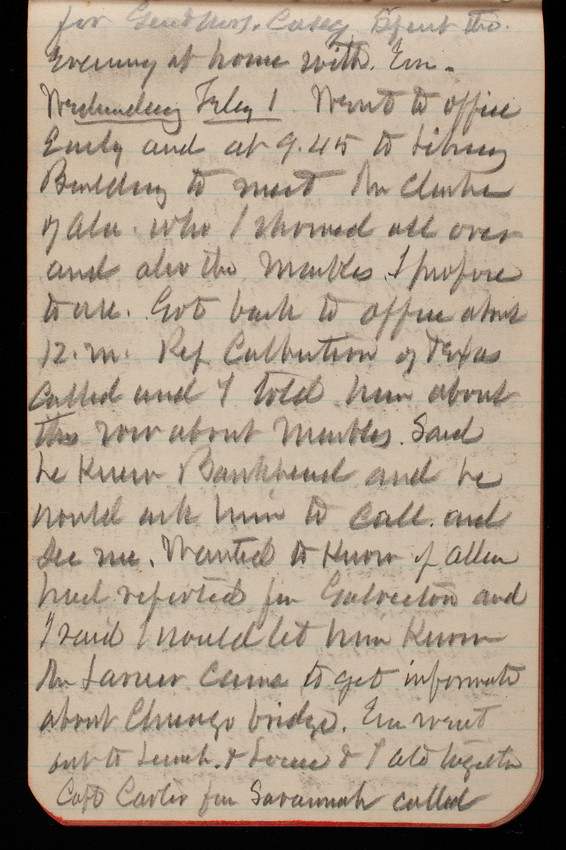 for Genl & Mrs. Casey. Spent the
Evening at home with Em.
Wednesday Feby 1 Went to office
Early and at 9.45 to Library
Building to meet Mr Clarke
of Ala. who I showed all over
and also the Marbles I propose
to use. Got back to office about
12. m. Rep Culberson of Texas
Called and I told him about
this row about Marbles. Said
he knew Bankhead and he
would ask him to call and
see me. Wanted to know if Allen
had reported for Galveston and
I said I would let him know
Mr Larner came to get informatn
about Chicago bridge. Em went
out to Lunch. & & I ate together
Capt Carter fm Savannah called